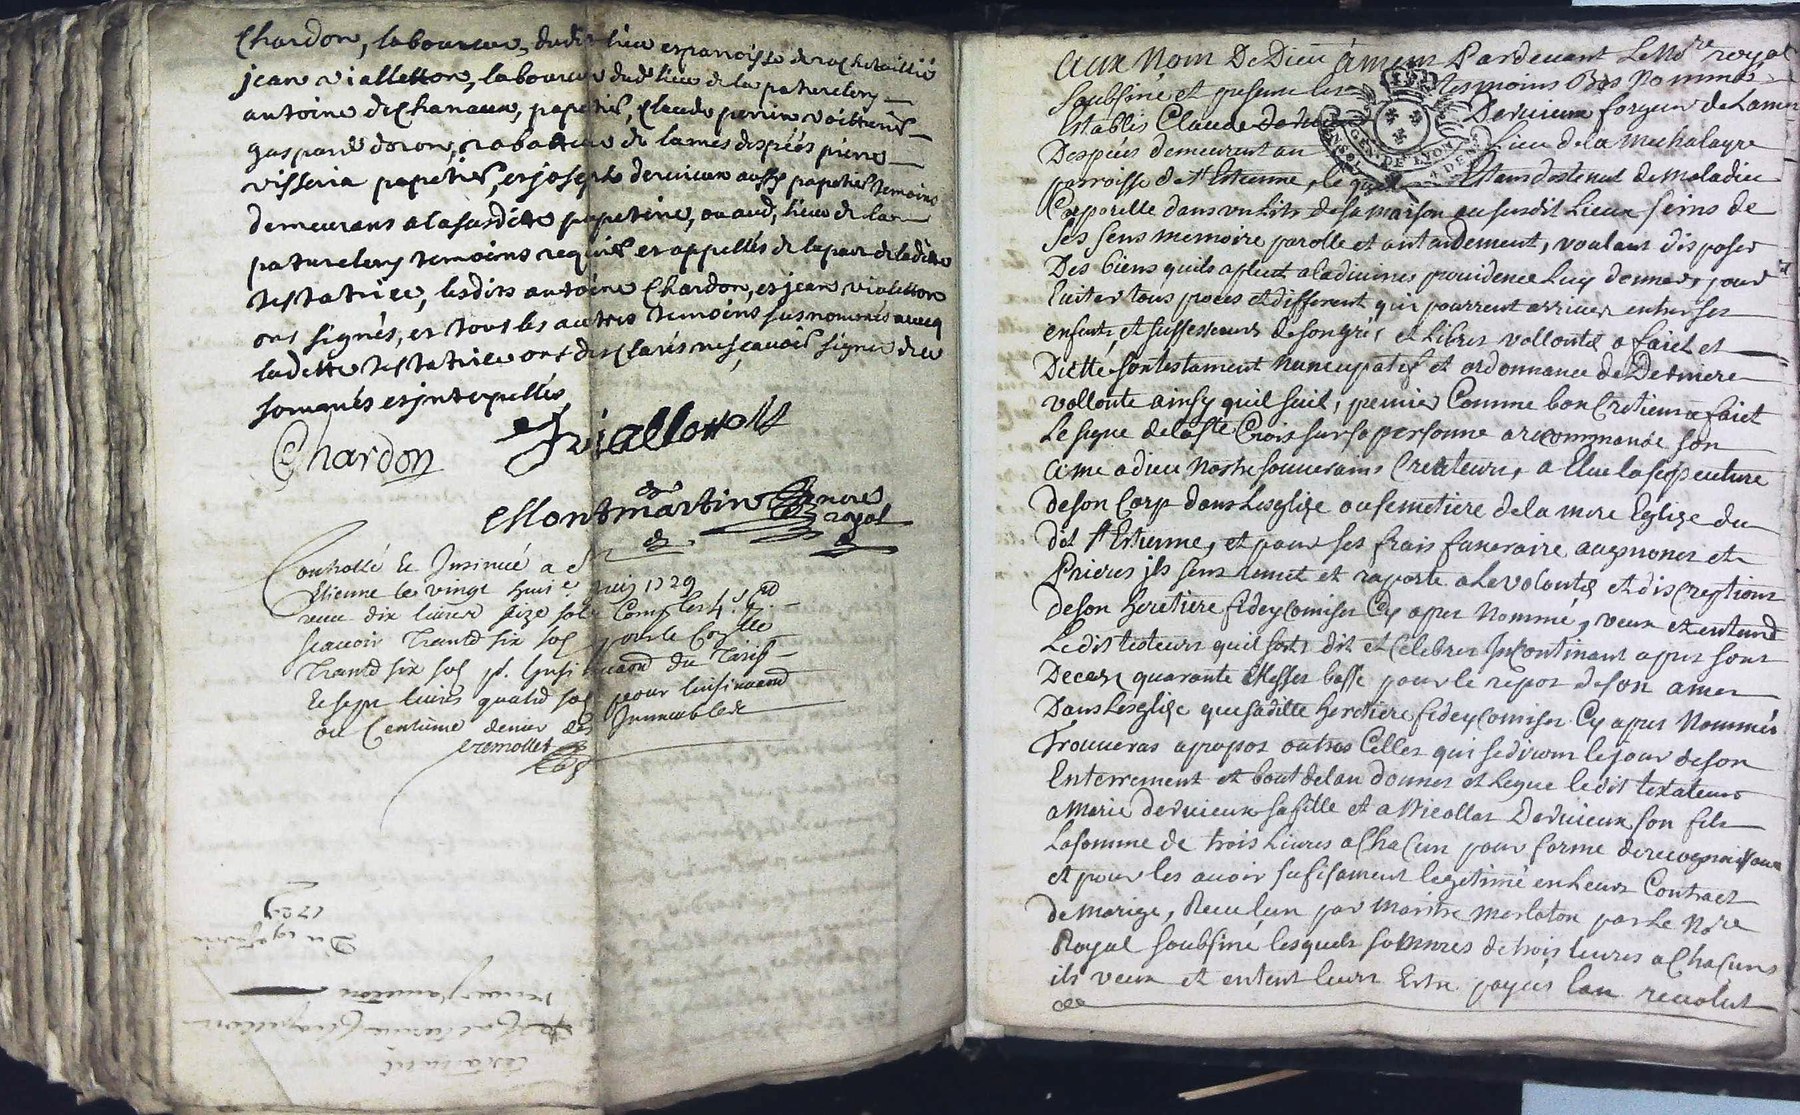 Chardon, laboureur, dudit lieu et parroisse de rochetaillié
jean vialletton, laboureur dud. lieu de la paturelery
antoine dechanaux, papetier, Claude perrin voiturier
gaspard doron, rabateur de lames despéés pierre
visseria papetier, et joseph dervieux aussy papetier temoins
demeurans a la susditte papeterie, ou aud. lieu de la
paturelery temoins requis et appellés de la part de laditte
testatrice, lesdits antoine Chardon, et jean violetton
ont signés, et tous les autres temoins susnommés avecq
laditte testatrice ont desclarés ne sçavoir signer de ce
sommés et interpellés
Chardon J viallettott
Montmartin nore
royal
Controllé et Insinué a St
Etienne le vingt huit juin 1729
receu dix livres seize sols Compris
scavoir Trante six sols pour le Colle
Trante six sols pr. Insinuaon du Tarif
et sept livres quatre sols pour linsinuaon
au Centieme denier des Immeubles
cramollet
1729
Aux Nom De Dieu Amen Pardevant Le Nore royal
soubsiné et presens les temoins Bas Nommés
Establis Claude Dervieux forgeur de Lames
Despéés demeurant au Lieu de la Michalagre
parroisse de st Estienne, le quel Estans destenut de maladie
Corporelle dans un Lits de sa maison au susdit Lieux seins de
ses sens memoire parolle et antandement, voulant disposer
Des biens quils aplut a la divines providence Luy donner, pour
Eviter tous proces et different qui pourrent arriver entre ses
enfants, et suffesseurs de son gré, et Libres vollonté a fairt et
Ditte son testament Nuncupatif et ordonnance de Derniere
vollonte ainsy quil suit, premier Comme bon Cretiens a fairt
Le signe de la ste Crois sur sa personne a recommandé son
ame a dieu Nostre souverains Createurs, a Elue la sepeulture
de son Corp dans Lesglize ou semetiere de la mere Eglize du
dit st Estienne, et pour ses frais funeraire aupmones et
Prieres jls sens remet et raporte a la volontés et discreptions
de son heretiere fideycomiser Cy apres Nommé, veux et entend
Le dit testeurs quil soits dit et Celebrer Incontinant apres sons
Deces quarante Messes basse pour le repos de son amer
Dans Lesglize que saditte heretiere fideycomiser Cy apres Nommés
Trouveras apropos outres Celles qui se diront le jour de son
Enterrement et bout delan donnes et legue le dit textateurs
a Marie dervieux sa fille et a Nicollas Dervieux son fils
La somme de trois Livres a ChaCun pour forme de recognoissance
et pour les avoir sufisament legetimé en Leurs Contraet
de Marige, Receu lun par Maistre Merlaton par Le Nore
Royal soubsiné lesquels sommes de trois livres a ChaCuns
ils veux et entent Leurs Estre payés lan revolut
GEN. DE LYON